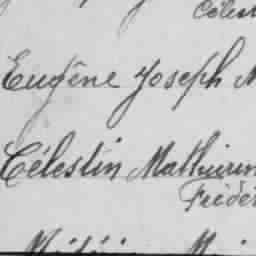 Célest
Eugène Joseph M
Célestin Mathurin
Frédér